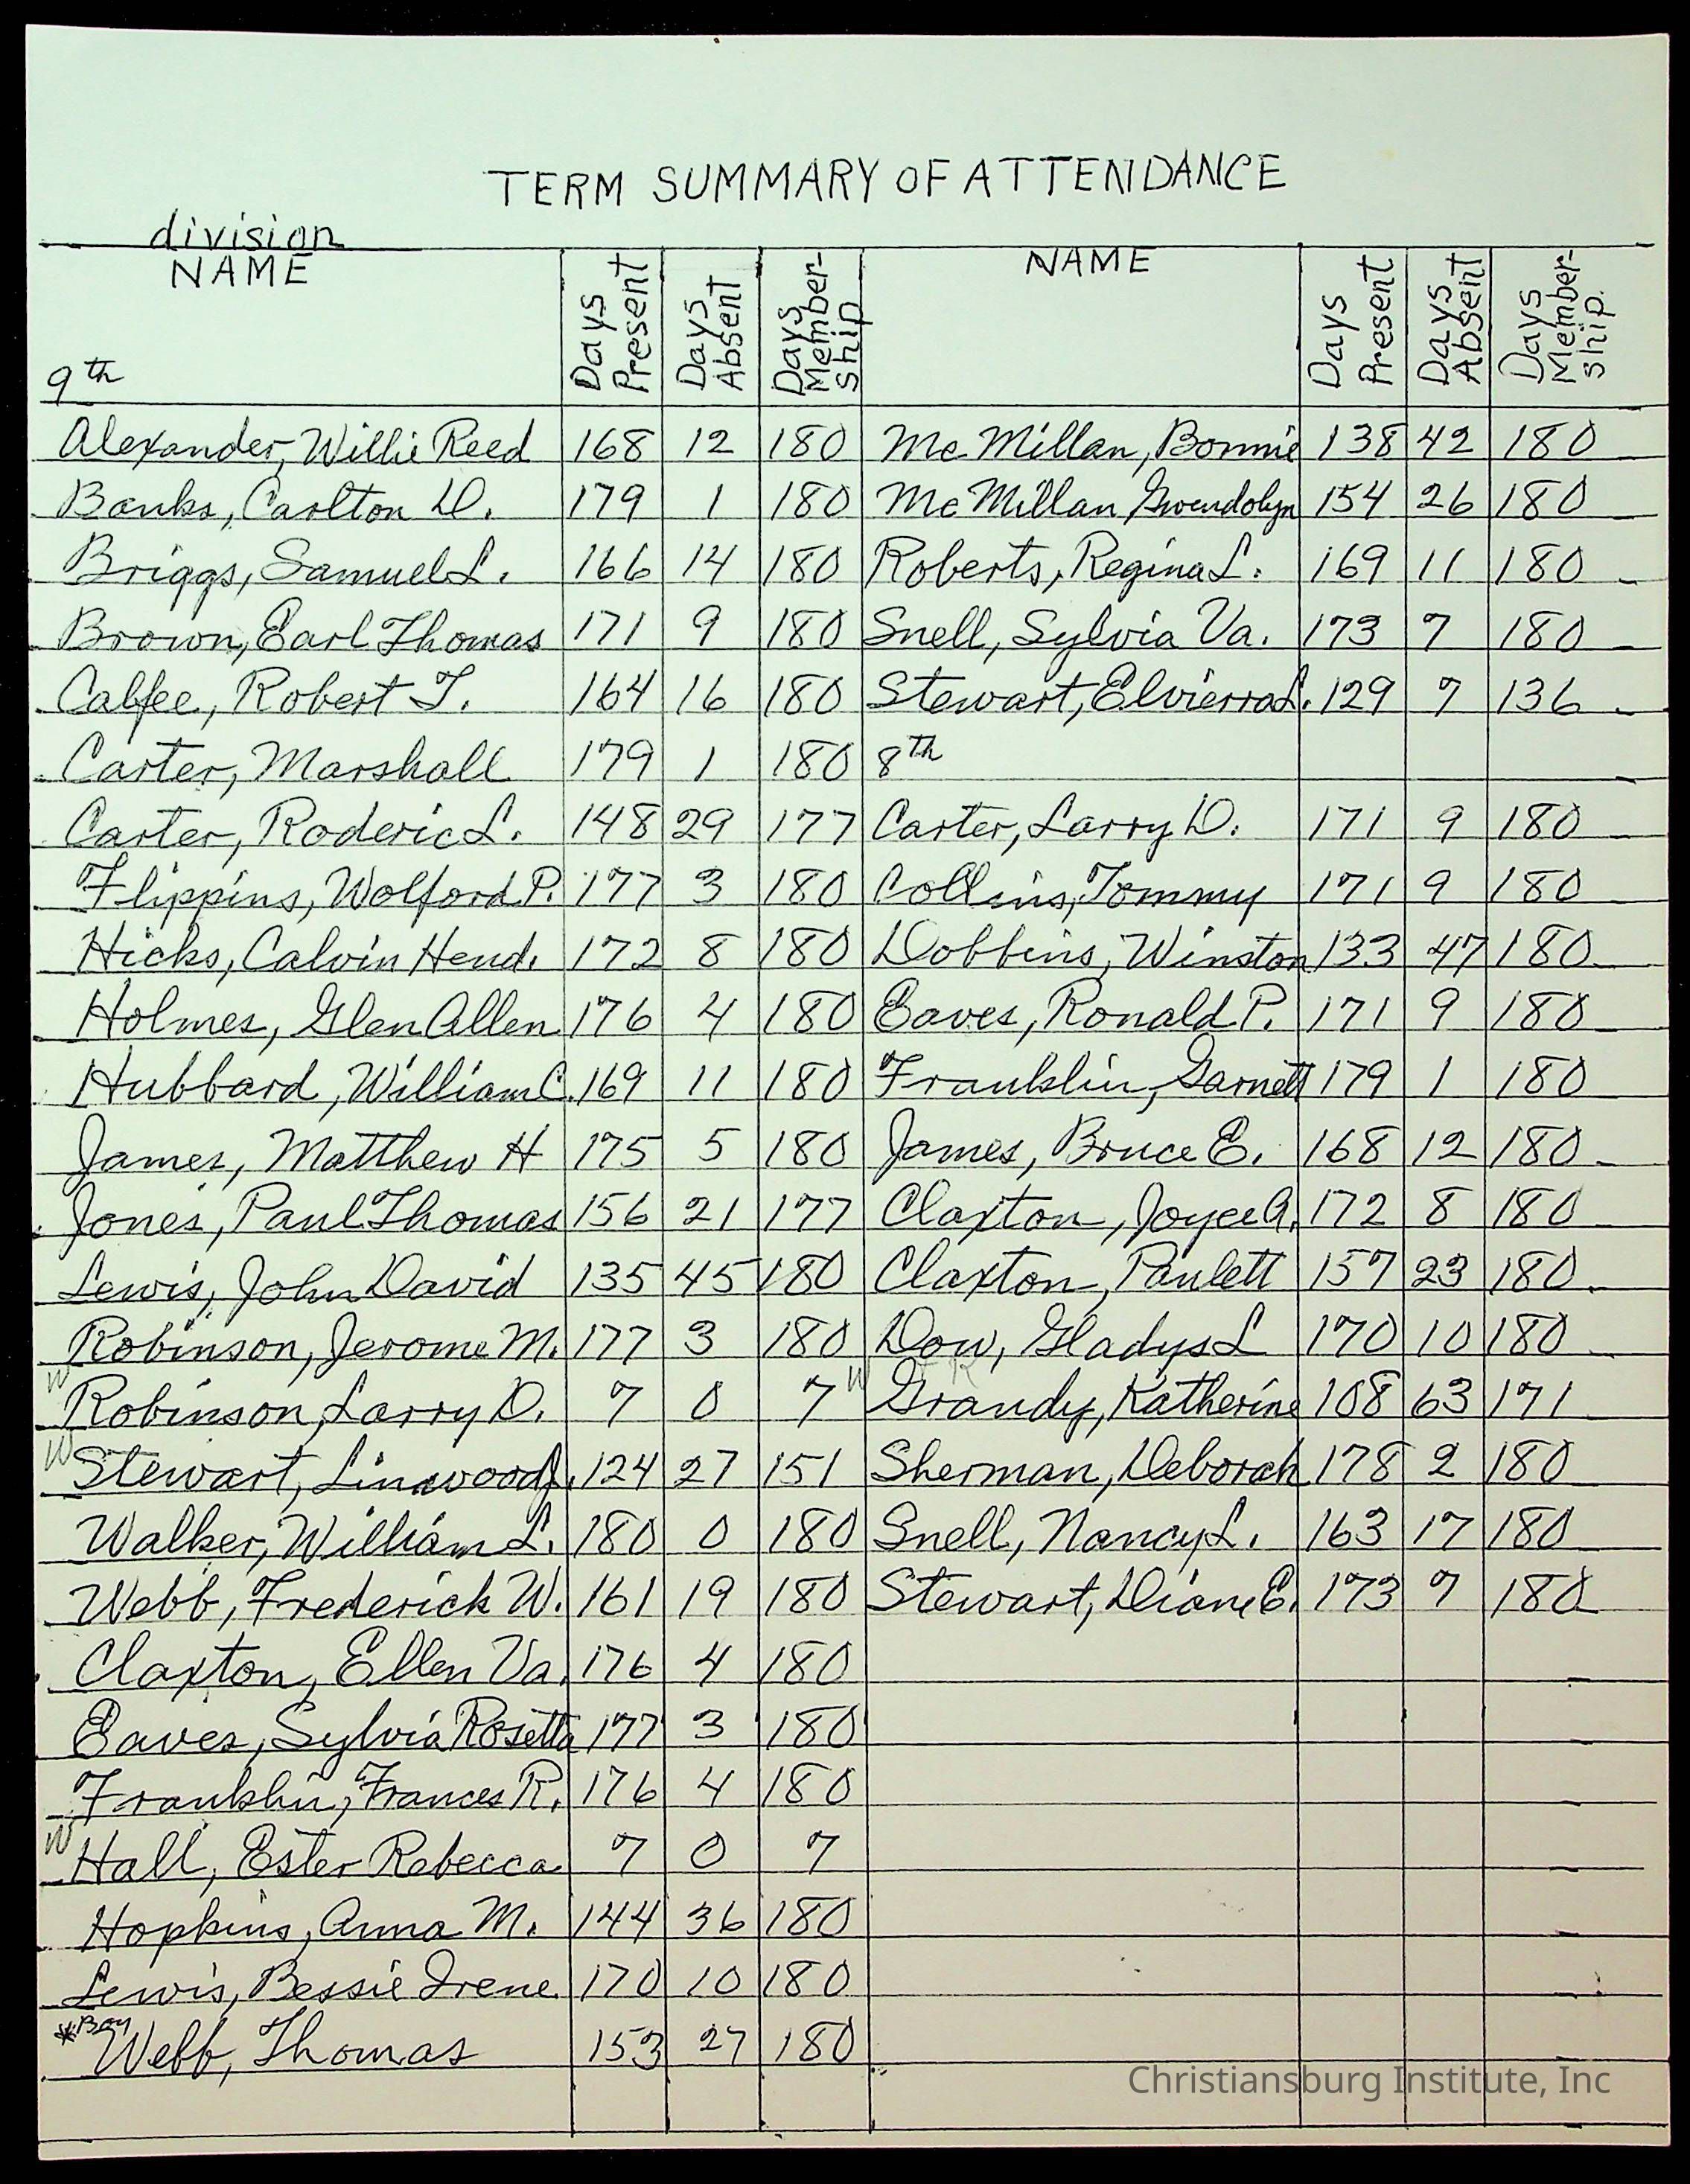 TERM SUMMARY OF ATTENDANCE
division
NAME Days Present Days Absent Days Member-ship NAME Days Present Days Absent Days Member-ship.
9th
Alexander, Willie Reed 168 12 180 McMillan, Bonnie 138 42 180
Banks, Carlton D. 179 1 180 McMillan, Gwendolyn 154 26 180
Briggs, Samuel L. 166 14 180 Roberts, Regina L. 169 11 180
Brown, Earl Thomas 171 9 180 Snell, Sylvia Va. 173 7 180
Calfee, Robert T. 164 16 180 Stewart, Elvierra L. 129 7 136
Carter, Marshall 179 1 180 8th
Carter, Roderic L. 148 29 177 Carter, Larry D. 171 9 180
Flippins, Wolford P. 177 3 180 Collins, Tommy 171 9 180
Hicks, Calvin Hend. 172 8 180 Dobbins, Winston 133 47 180
Holmes, Glen Allen 176 4 180 Eaves, Ronald P. 171 9 180
Hubbard, William C. 169 11 180 Franklin, Garnett 179 1 180
James, Matthew H 175 5 180 James, Bruce E. 168 12 180
Jones, Paul Thomas 156 21 177 Claxton, Joyce A. 172 8 180
Lewis, John David 135 45 180 Claxton, Paulett 157 23 180
Robinson, Jerome M. 177 3 180 Dow, Gladys L 170 10 180
W Robinson, Larry D. 7 0 7 W Grandy, Katherine 108 63 171
W Stewart, Linwood J. 124 27 151 Sherman, Deborah 178 2 180
Walker, William L. 180 0 180 Snell, Nancy L. 163 17 180
Webb, Frederick W. 161 19 180 Stewart, Diane E. 173 7 180
Claxton, Ellen Va. 176 4 180
Eaves, Sylvia Rosetta 177 3 180
Franklin, Frances R. 176 4 180
W Hall, Ester Rebecca 7 0 7
Hopkins, Anna M. 144 36 180
Lewis, Bessie Irene 170 10 180
*Boy Webb, Thomas 153 27 180
Christiansburg Institute, Inc